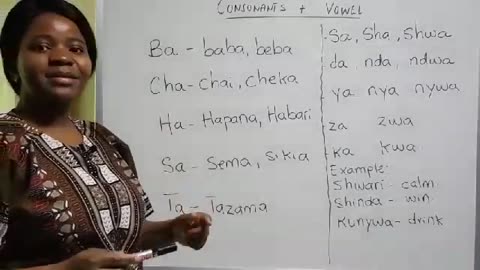 CONSONANTS + VOWEL
Ba - baba, beba
Cha - chai, cheka
Ha - Hapana, Habari
Sa - Sema, sikia
Ta - Tazama
Sa, Sha, Shwa
da nda, ndwa
ya nya nywa
za zwa
ka kwa
Example:
Shwari - calm
Shinda - win
Kunywa - drink